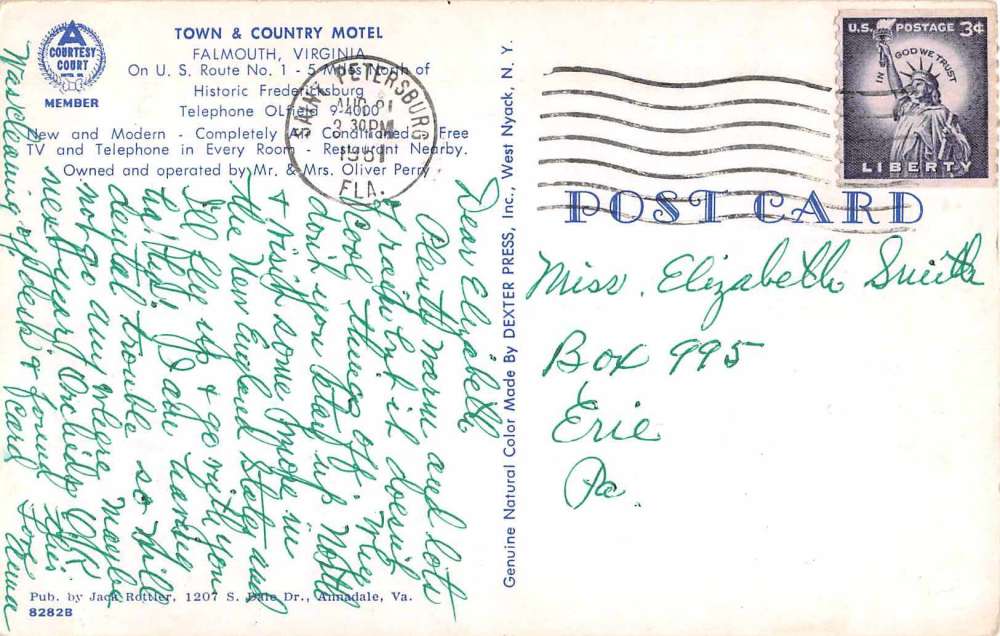 A
COURTESY
COURT
MEMBER
TOWN & COUNTRY MOTEL
FALMOUTH, VIRGINIA
On U. S. Route No. 1 - 5 Miles North of
Historic Fredericksburg
Telephone OLfield 9-4000
New and Modern - Completely Air Conditioned - Free
TV and Telephone in Every Room - Restaurant Nearby.
Owned and operated by Mr. & Mrs. Oliver Perry
Dear Elizabeth
Plenty warm and lots
of rain but it doesn't
cool things off. Why
don't you stay up North
& visit some more in
the New England States and
I'll fly up & go with you
to
dental trouble so will
not go any where. Maybe
next year. Orchids OK
Was cleaning off desk & found this
card Love
Pub. by Jack Rottler, 1207 S. Dale Dr., Annadale, Va.
8282B
Genuine Natural Color Made By DEXTER PRESS, Inc., West Nyack, N. Y.
SAINT PETERSBURG
AUG 21
2 30PM
1961
FLA.
U.S. POSTAGE 3¢
IN GOD WE TRUST
LIBERTY
POST CARD
Miss. Elizabeth Smith
Box 995
Erie
Pa.